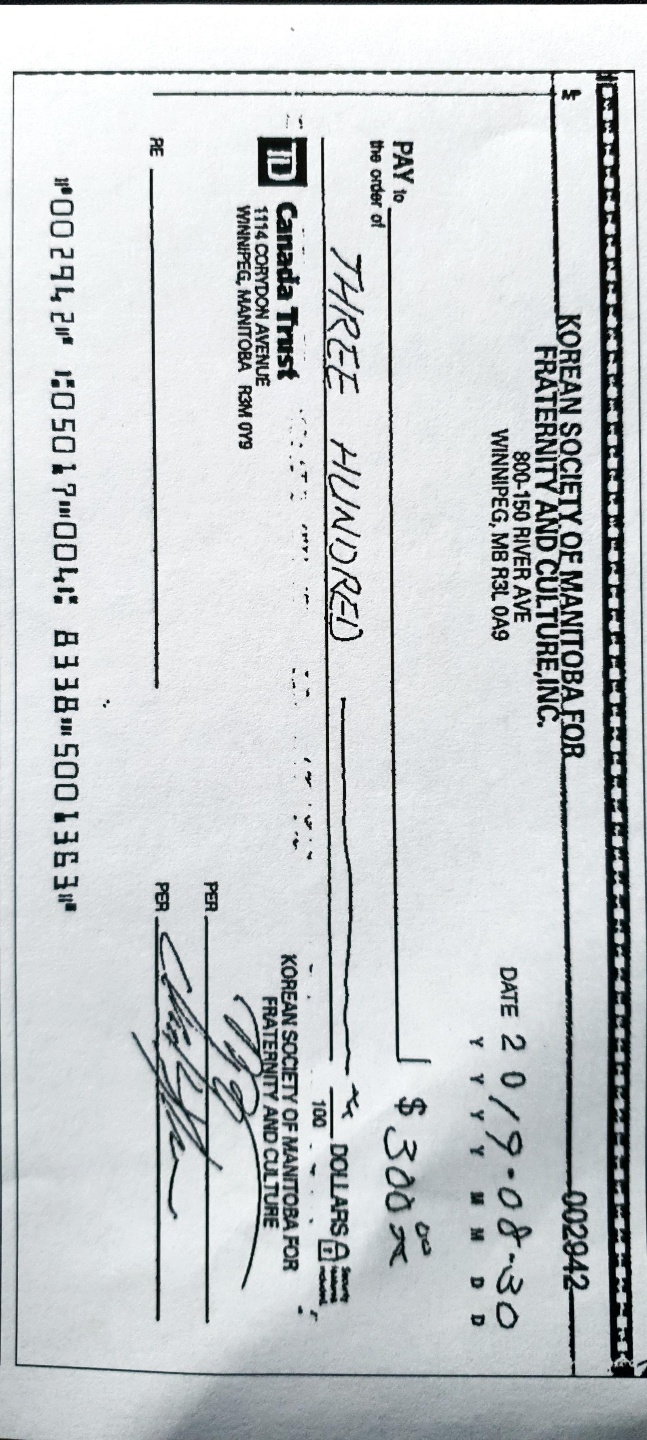 KOREAN SOCIETY OF MANITOBA FOR
FRATERNITY AND CULTURE, INC.
800-150 RIVER AVE
WINNIPEG, MB R3L 0A9
002942
DATE 2019-08-30
Y Y Y Y M M D D
PAY to
the order of
$ 300 00
THREE HUNDRED
100 DOLLARS
Security features included.
TD Canada Trust
1114 CORYDON AVENUE
WINNIPEG, MANITOBA R3M 0Y9
KOREAN SOCIETY OF MANITOBA FOR
FRATERNITY AND CULTURE
PER
PER
RE
⑈002942⑈ ⑆05017⑉004⑆ 8338⑉5001363⑈